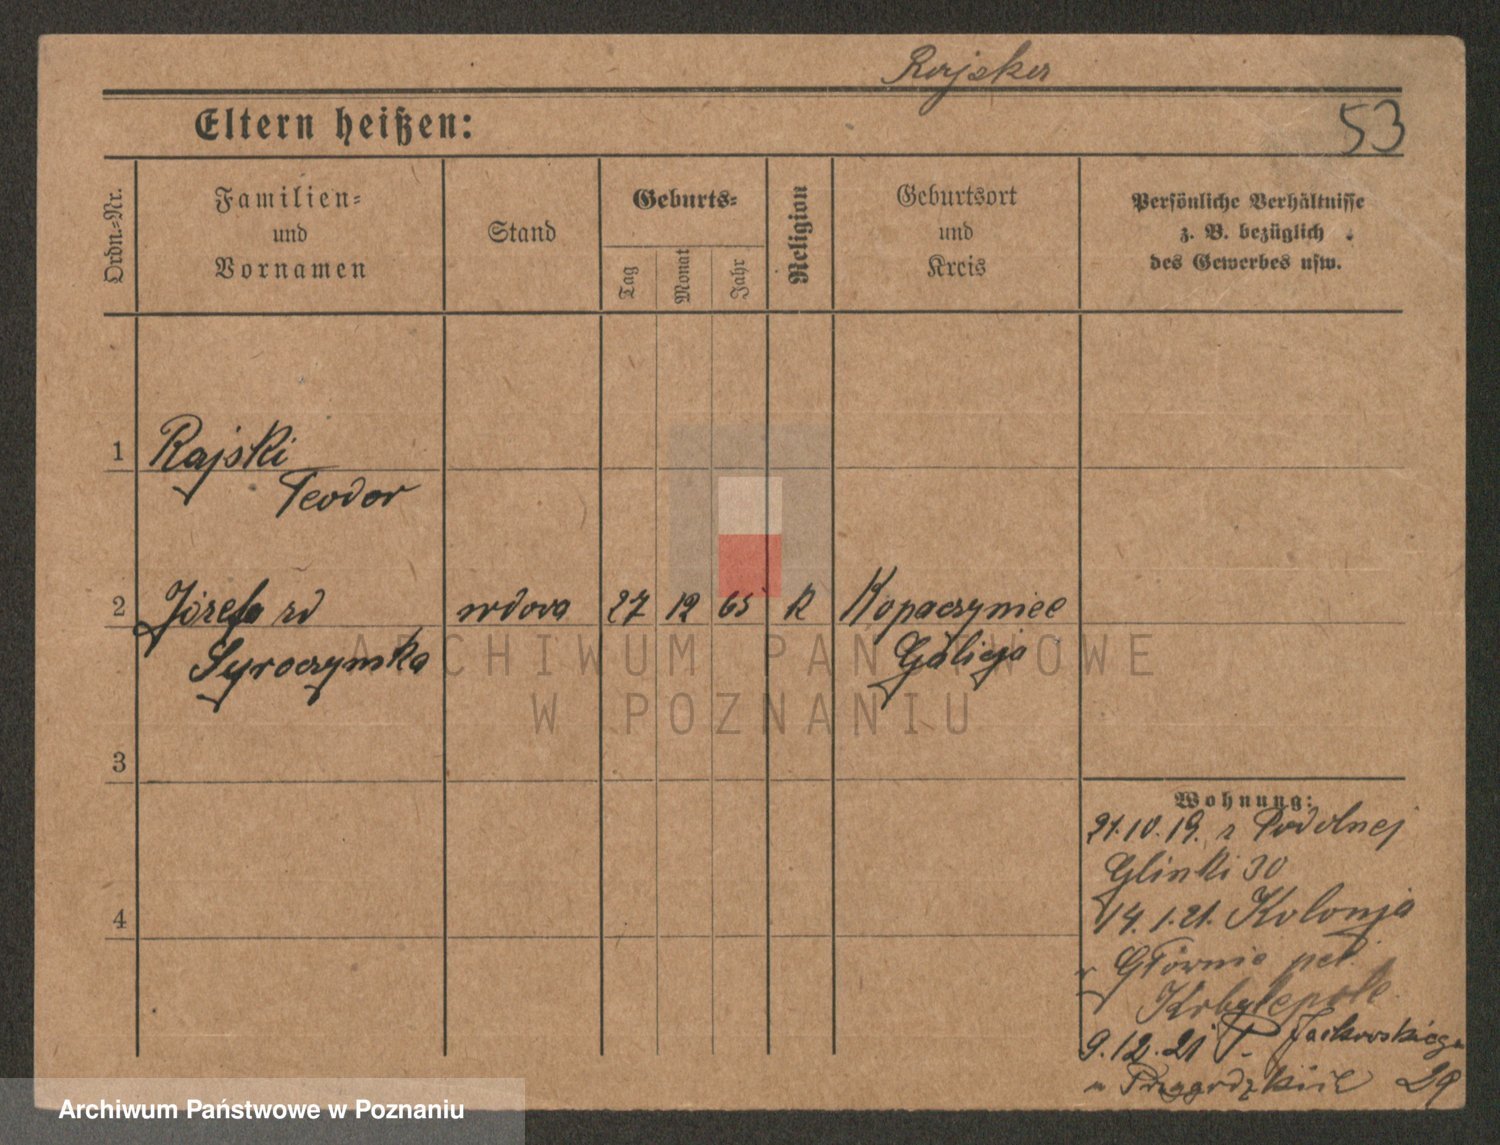 Rajska
Eltern heißen:
53
Ordn.-Nr.
Familien-
und
Vornamen
Stand
Geburts-
Tag
Monat
Jahr
Religion
Geburtsort
und
Kreis
Persönliche Verhältnisse
z. B. bezüglich
des Gewerbes usw.
1
Rajski
Teodor
2
Józefa zd wdova 27 12 65 K Kopaczynice
Syroczymska Galicja
3
4
Wohnung:
21.10.19. z Podolnej
Glinki 30
14.1.21. Kolonja
Głównie
Kobylepole
9.12.21 Jackowskiego
29
ARCHIWUM PAŃSTWOWE
W POZNANIU
Archiwum Państwowe w Poznaniu